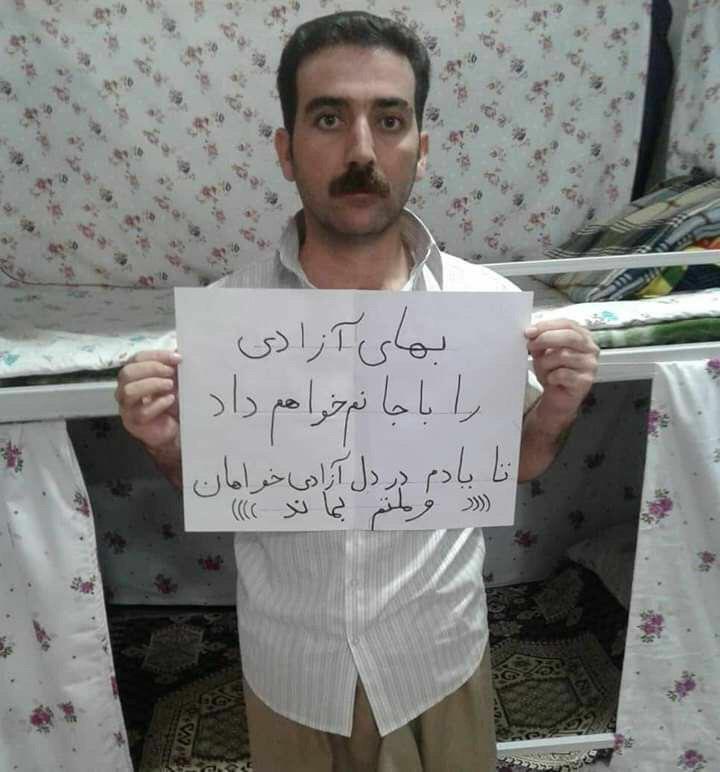 بهای آزادی
را با جانم خواهم داد
تا یادم در دل آزادی خواهان
)))) و ملتم بماند ((((